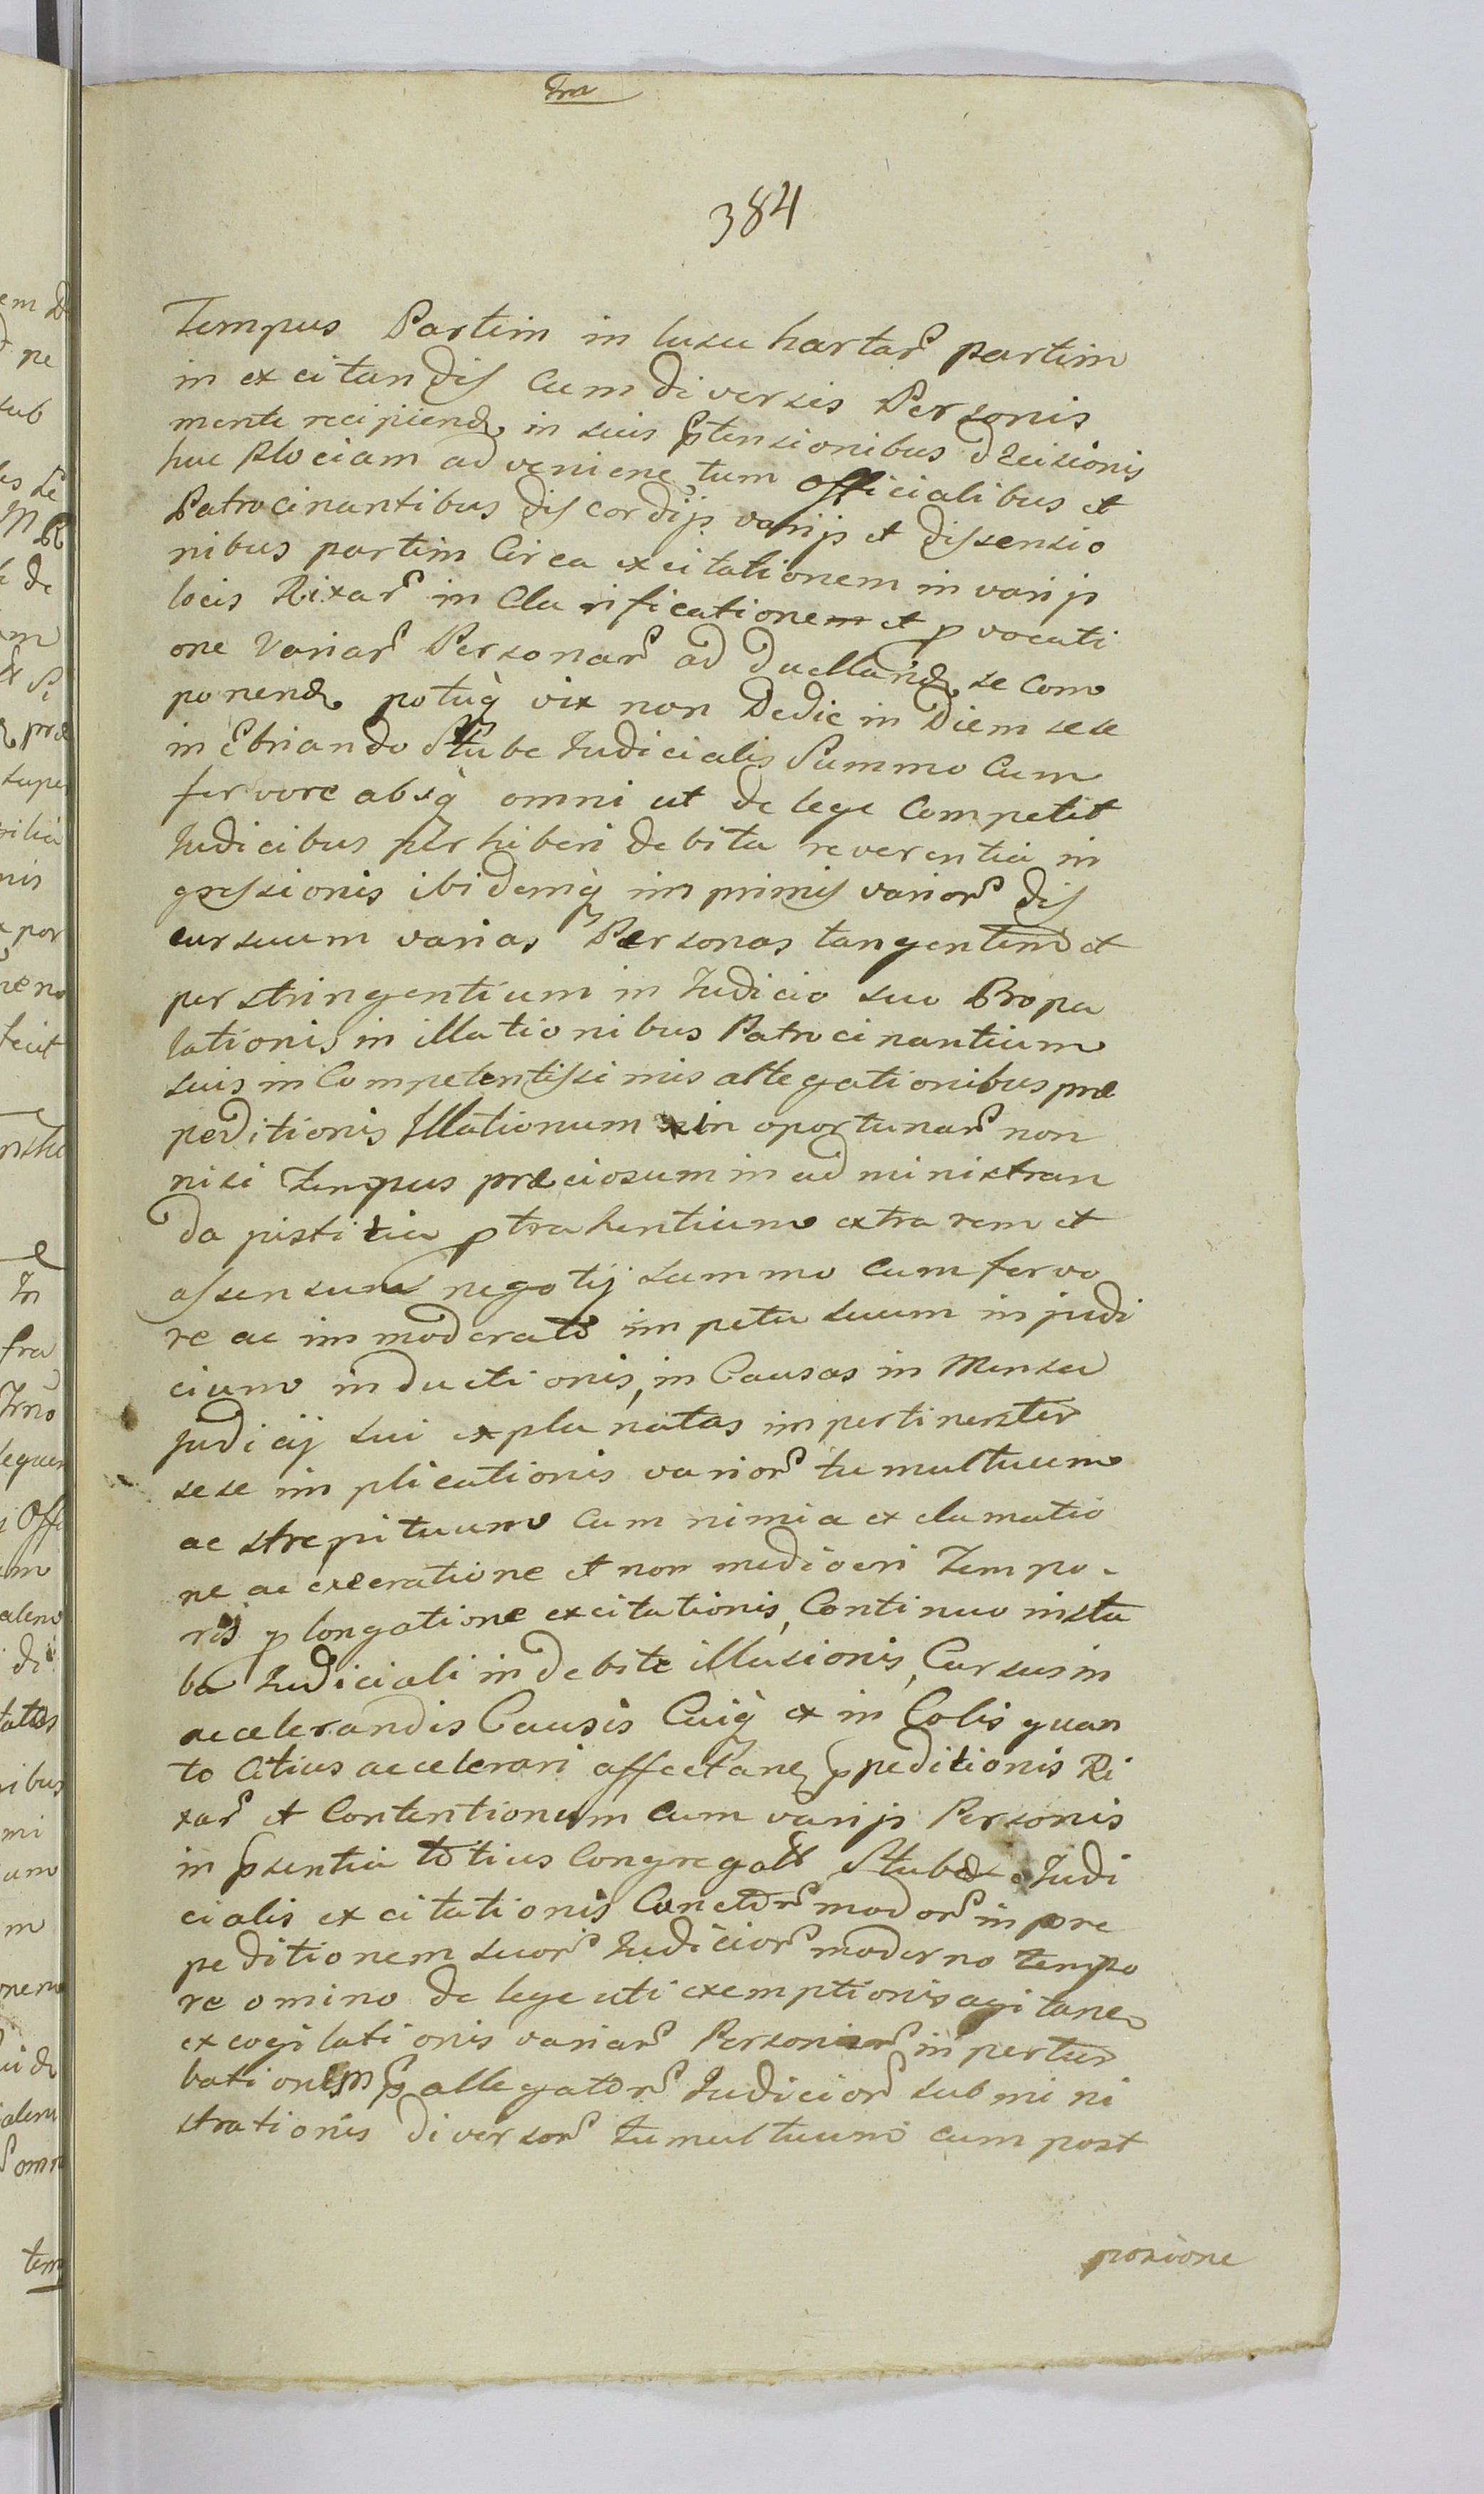 Tra
384
Tempus Partim in lusu hartar̃ partim
in excitandis cum diversis Personis
mente recipiend in suis p̃tensionibus decisionis
huc Plociam advenienc tum officialibus et
Patrocinantibus discordijs varijs et dissensio
nibus partim Circa excitationem in varijs
locis Rixar̃ in Clarificationem et pvocati
one Variar̃ Personar̃ ad duelland se com
ponend potuq̀ vix non Dedie in Diem sese
in Ebriando Stubæ Iudicialis Summo Cum
fervore absq̀ omni ut de lege Competit
Iudicibus perhiberi debita reverentia in
gressionis ibidemq̀ imprimis varior̃ dis
cursuum varias Personas tangentium et
perstringentium in Iudicio suo Propa
lationis in illationibus Patrocinantium
suis inCompetentissimis allegationibus præ
peditionis Illationum in oportunar̃ non
nisi Tempus præciosum in administran
da justitia ptrahentium extra rem et
assensum negotij summo cum fervo
re ac immoderato impetu suum in judi
cium inductionis, in Causas in Mensa
judicij sui explanatas impertinenter
sese implicationis varior̃ tumultuum
ac strepituum cum nimia exclamatio
ne ac execratione et non mediocri Tempo-
ris plongatione excitationis, Continuo in stu
ba Iudiciali indebite illusionis, Cursus in
accelerandis Causis Cuiq̀ ex in Colis quan
to Citius accelerari affectanc p̃peditionis Ri
xar̃ et Contentionum cum varijs Personis
in p̃sentia totius Congregatæ Stubæ Iudi
cialis excitationis Cunctor̃ modor̃ in præ
peditionem suor̃ Iudicior̃ moderno tempo
re omino de lege uti exemptionis agitanc
excogitationis variar̃ Personar̃ in pertur
bationem p̃allegator̃ Iudicior̃ submini
strationis diversor̃ tumultuum cum post
posione